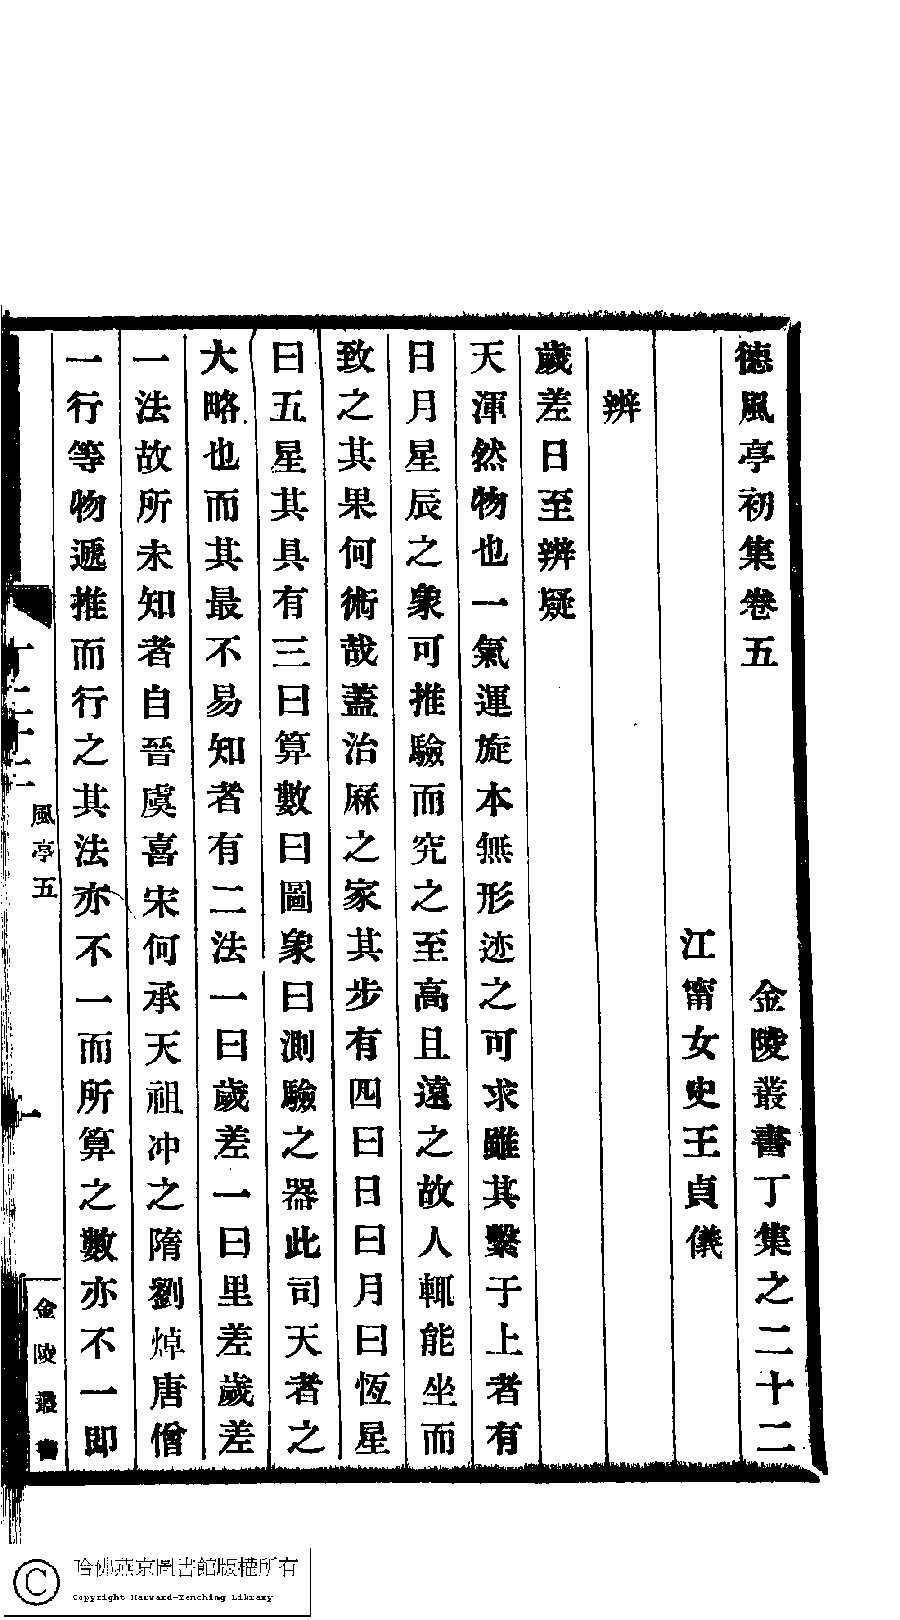 德風亭初集卷五 金陵叢書丁集之二十二
江甯女史王貞儀
辨
歲差日至辨疑
天渾然物也一氣運旋本無形迹之可求雖其繫于上者有
日月星辰之象可推驗而究之至高且遠之故人輒能坐而
致之其果何術哉蓋治厤之家其步有四曰日曰月曰恆星
曰五星其具有三曰算數曰圖象曰測驗之器此司天者之
大略也而其最不易知者有二法一曰歲差一曰里差歲差
一法故所未知者自晉虞喜宋何承天祖冲之隋劉焯唐僧
一行等物遞推而行之其法亦不一而所算之數亦不一即
風亭五
一
金陵叢書
哈佛燕京圖書館版權所有
Copyright Harvard-Yenching Library